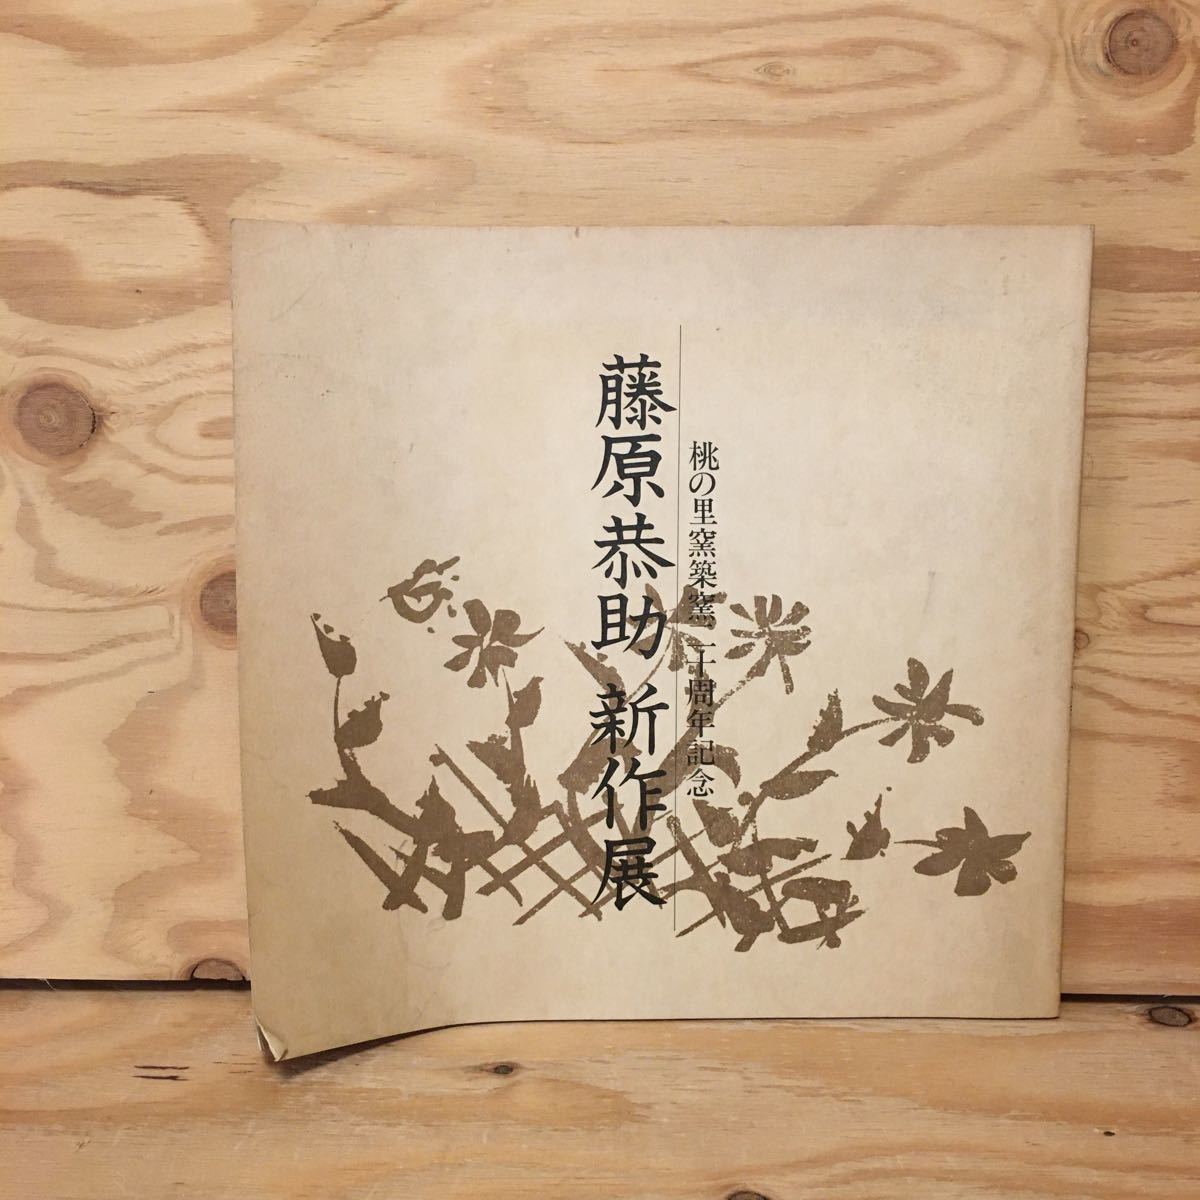 桃の里窯築窯、二十周年記念
藤原恭助 新作展